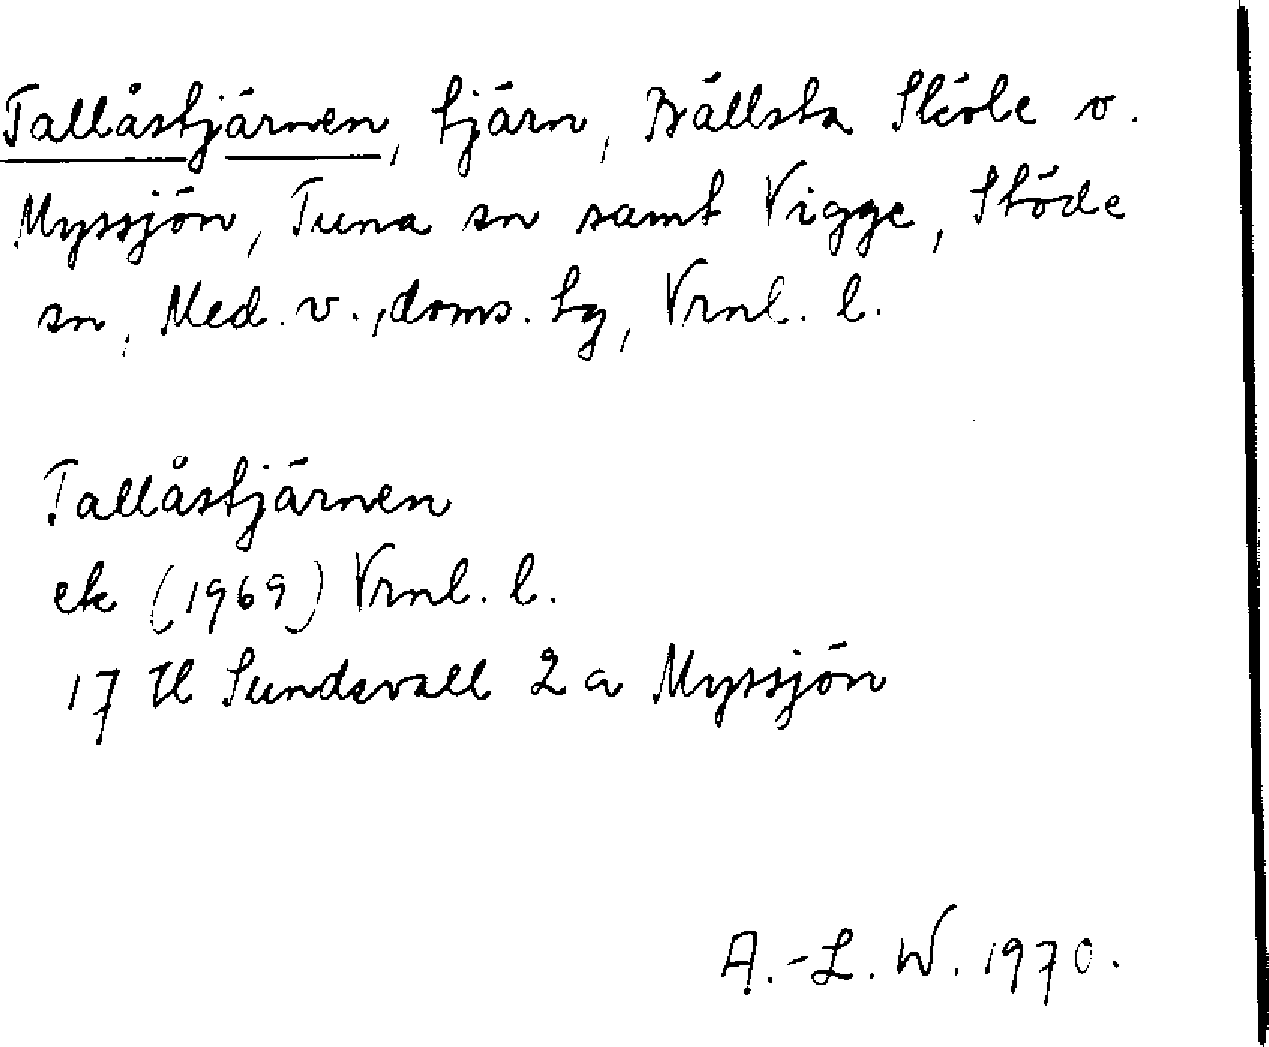 Tallåstjärnen, tjärn, Bällsta Sköle o.
Myssjön, Tuna sn samt Vigge, Stöde
sn, Med. v., doms. tg, Vrnl. l.
Tallåstjärnen
ek (1969) Vrnl. l.
17 H Sundsvall 2 a Myssjön
A.-L. W. 1970.